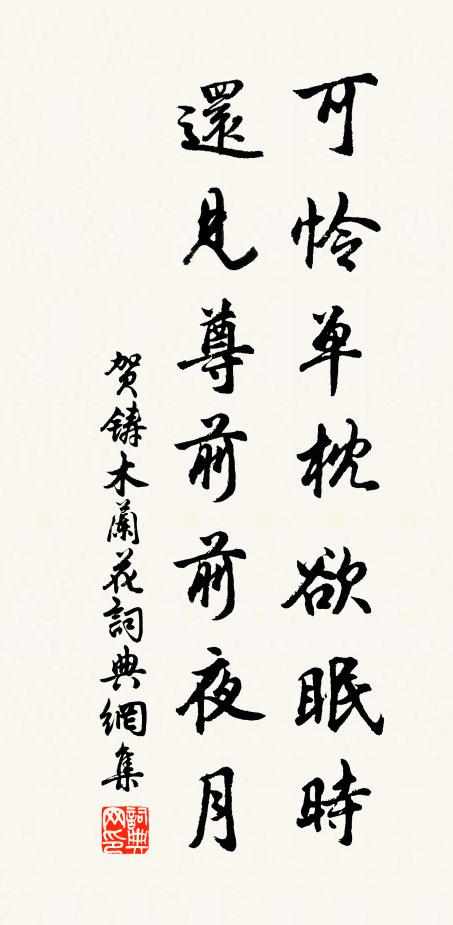 可怜单枕欲眠時
還見尊前前夜月
贺鑄木蘭花詞典網集
詞典网印